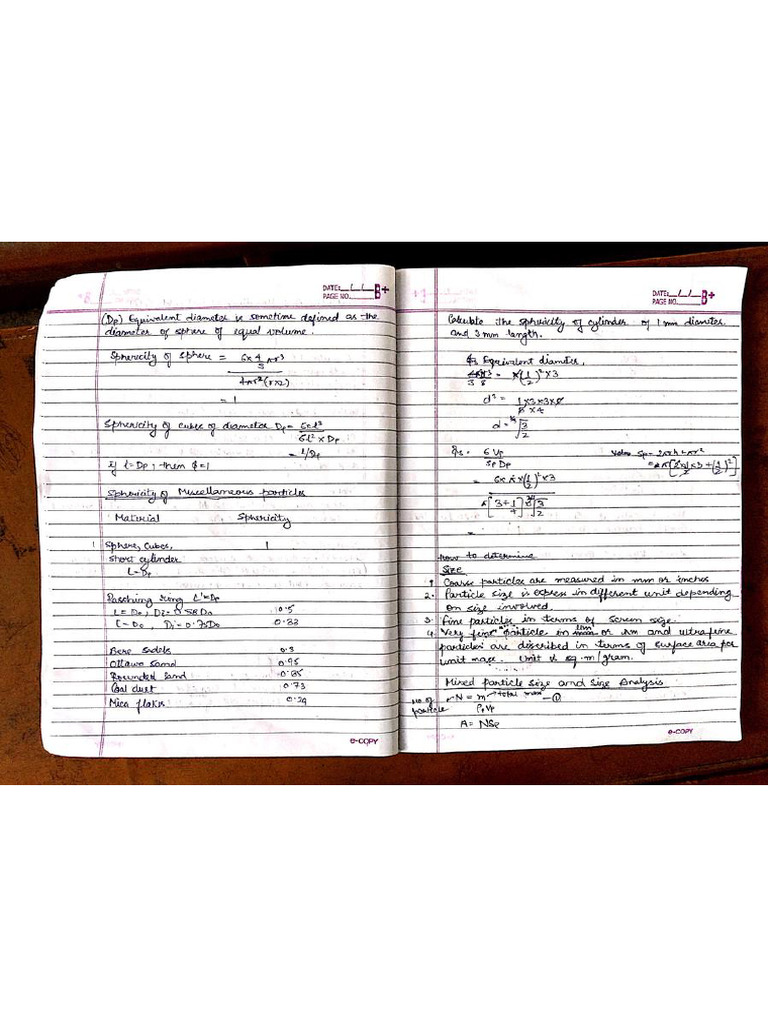 DATE: __/__/__ B+
PAGE NO.
(Dp) Equivalent diameter is sometime defined as the
diameter of sphere of equal volume.
Sphericity of sphere = 6 x 4/3 πr³
4πr² (r x 2)
= 1
Sphericity of cubes of diameter Dp = 6 x l³
6l² x Dp
= l/Dp
if l = Dp ; then ϕ = 1
Sphericity of Miscellaneous particles
Material Sphericity
1 Sphere, Cubes, 1
short cylinder
L = Dp
Rasching ring L = Dp
L = Do, Di = 0.5 Do 0.5
L = Do, Di = 0.75 Do 0.33
Bere sadels 0.3
Ottawa sand 0.95
Rounded sand
Coal dust 0.73
Mica flakes
e-COPY
DATE: __/__/__ B+
PAGE NO.
Calculate the sphericity of cylinder of 1 mm diameter
and 3 mm length.
Equivalent diameter,
= π(1/2)² x 3
d³ =
d = ∛
ϕs = 6 Vp
Sp Dp
= 6 x π x (1/2)² x 3
π[3 + 1/2]
=
How to determine
Size
1 Coarse particles are measured in mm or inches
2. Particle size is express in different unit depending
on size involved.
3. Fine particles in terms of screen size.
4. Very fine particle in or nm and ultrafine
particles are discribed in terms of surface area per
unit mass. Unit is sq. m/gram.
Mixed Particle size and size Analysis
no. of N = m → total mass — ①
particle ρpVp
A = NSp
e-COPY